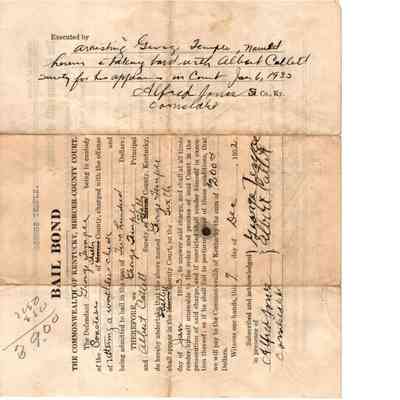 Executed by
arresting George Temple, named
herein & taking bond with Albert Catlett
surety for his appearance in Court Jan 6, 1933
Alfred Jones S. Co., Ky.
Cornelake
GEORGE TEMPLE
BAIL BOND
THE COMMONWEALTH OF KENTUCKY, MERCER COUNTY COURT.
The Defendant, George Temple being in custody
of the County, charged with the offense
of
being admitted to bail in the sum of Two hundred Dollars:
THEREFORE, we George Temple Principal
and Albert Catlett Surety, of County, Kentucky,
do hereby undertake that the above named George Temple
shall appear in the County Court, on the Sixth
day of Jan 1933, to answer said charge, and shall at all times
render himself amenable to the order and process of said Court in the
prosecution of said charge, and if convicted, shall render himself in execu-
tion thereof; or if he shall fail to perform either of these conditions, that
we will pay to the Commonwealth of Kentucky the sum of 200.00
Dollars.
Witness our hands, this 7 day of Dec, 1932
Subscribed and acknowledged
in presence of
George Temple
Albert Catlett
Alfred Jones
Cornelake
9.00